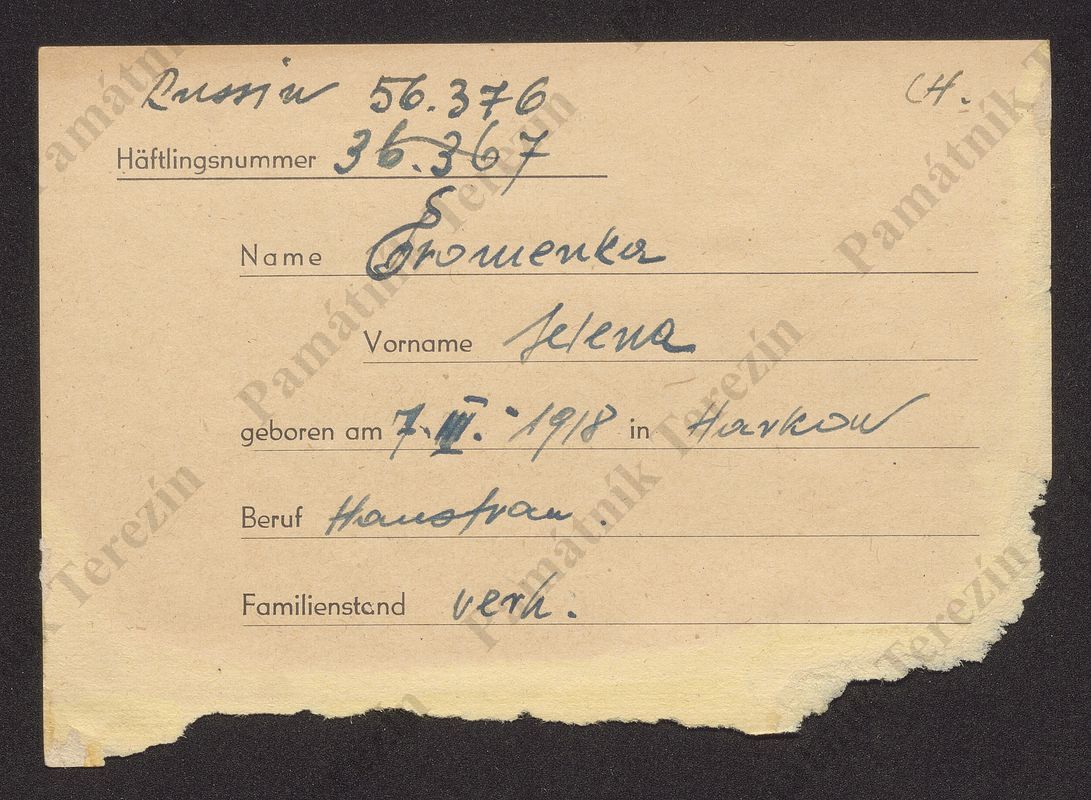 Russin 56.376 CH.
Häftlingsnummer 36.367
Name Gromenka
Vorname Jelena
geboren am 7. III. 1918 in Harkow
Beruf Hausfrau.
Familienstand verh.
Památník Terezín